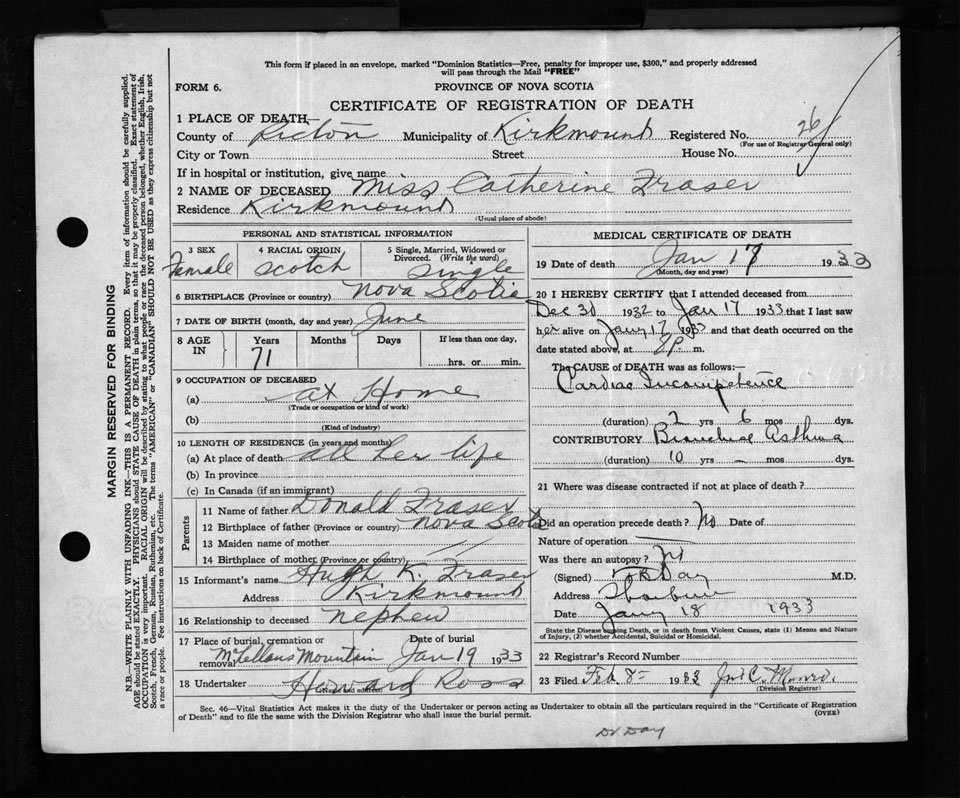 This form if placed in an envelope, marked "Dominion Statistics—Free, penalty for improper use, $300," and properly addressed
will pass through the Mail "FREE"
FORM 6.
PROVINCE OF NOVA SCOTIA
CERTIFICATE OF REGISTRATION OF DEATH
1 PLACE OF DEATH
County of Pictou Municipality of Kirkmount Registered No. 26
(For use of Registrar General only)
City or Town Street House No.
If in hospital or institution, give name
2 NAME OF DECEASED Miss Catherine Fraser
Residence Kirkmount
(Usual place of abode)
PERSONAL AND STATISTICAL INFORMATION
3 SEX 4 RACIAL ORIGIN 5 Single, Married, Widowed or
Divorced. (Write the word)
Female Scotch Single
6 BIRTHPLACE (Province or country) Nova Scotia
7 DATE OF BIRTH (month, day and year) June
8 AGE IN Years Months Days If less than one day,
71 hrs. or min.
9 OCCUPATION OF DECEASED
(a) at Home
(Trade or occupation or kind of work)
(b)
(Kind of industry)
10 LENGTH OF RESIDENCE (in years and months)
(a) At place of death all her life
(b) In province
(c) In Canada (if an immigrant)
Parents
11 Name of father Donald Fraser
12 Birthplace of father (Province or country) Nova Scotia
13 Maiden name of mother
14 Birthplace of mother (Province or country) "
15 Informant's name Hugh K. Fraser
Address Kirkmount
16 Relationship to deceased nephew
17 Place of burial, cremation or Date of burial
removal McLellans Mountain Jan 19 1933
18 Undertaker Howard Ross
(Name and address)
MEDICAL CERTIFICATE OF DEATH
19 Date of death Jan 17 1933
(Month, day and year)
20 I HEREBY CERTIFY that I attended deceased from
Dec 30 1932 to Jan 17 1933 that I last saw
her alive on Jany 17 1933 and that death occurred on the
date stated above, at 8 P. m.
The CAUSE of DEATH was as follows:—
Cardiac Incompetence
(duration) 2 yrs 6 mos dys.
CONTRIBUTORY Bronchial Asthma
(duration) 10 yrs – mos dys.
21 Where was disease contracted if not at place of death?
Did an operation precede death? No Date of
Nature of operation
Was there an autopsy? No
(Signed) Day M.D.
Address Thorburn
Date Jany 18 1933
State the Disease causing Death, or in death from Violent Causes, state (1) Means and Nature
of Injury, (2) whether Accidental, Suicidal or Homicidal.
22 Registrar's Record Number
23 Filed Feb. 8 1933 Jno C. Munro.
(Division Registrar)
Sec. 46—Vital Statistics Act makes it the duty of the Undertaker or person acting as Undertaker to obtain all the particulars required in the "Certificate of Registration
of Death" and to file the same with the Division Registrar who shall issue the burial permit.
(OVER)
Dr Day
MARGIN RESERVED FOR BINDING
N.B.—WRITE PLAINLY WITH UNFADING INK—THIS IS A PERMANENT RECORD. Every item of information should be carefully supplied.
AGE should be stated EXACTLY. PHYSICIANS should STATE CAUSE OF DEATH in plain terms, so that it may be properly classified. Exact statement of
OCCUPATION is very important. RACIAL ORIGIN will be described by stating to what people or race the deceased person belonged, whether English, Irish,
Scotch, French, German, Russian, Ruthenian, etc. The terms "AMERICAN" or "CANADIAN" SHOULD NOT BE USED as they express citizenship but not
a race or people. Fee instructions on back of Certificate.